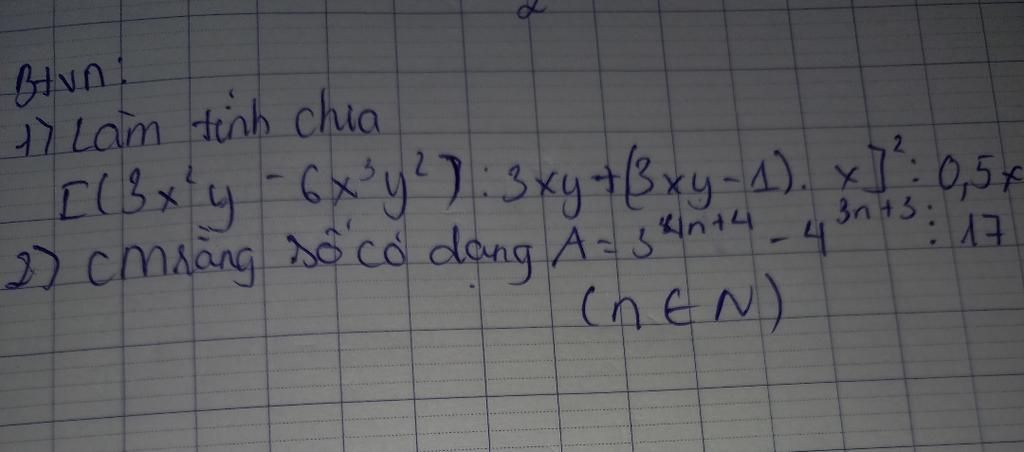 Btvn:
1) Làm tính chia
[(3x²y - 6x³y²) : 3xy + (3xy - 1) . x]² : 0,5x
2) CM rằng số có dạng A = 3⁴ⁿ⁺⁴ - 4³ⁿ⁺³ ⋮ 17
(n ∈ N)